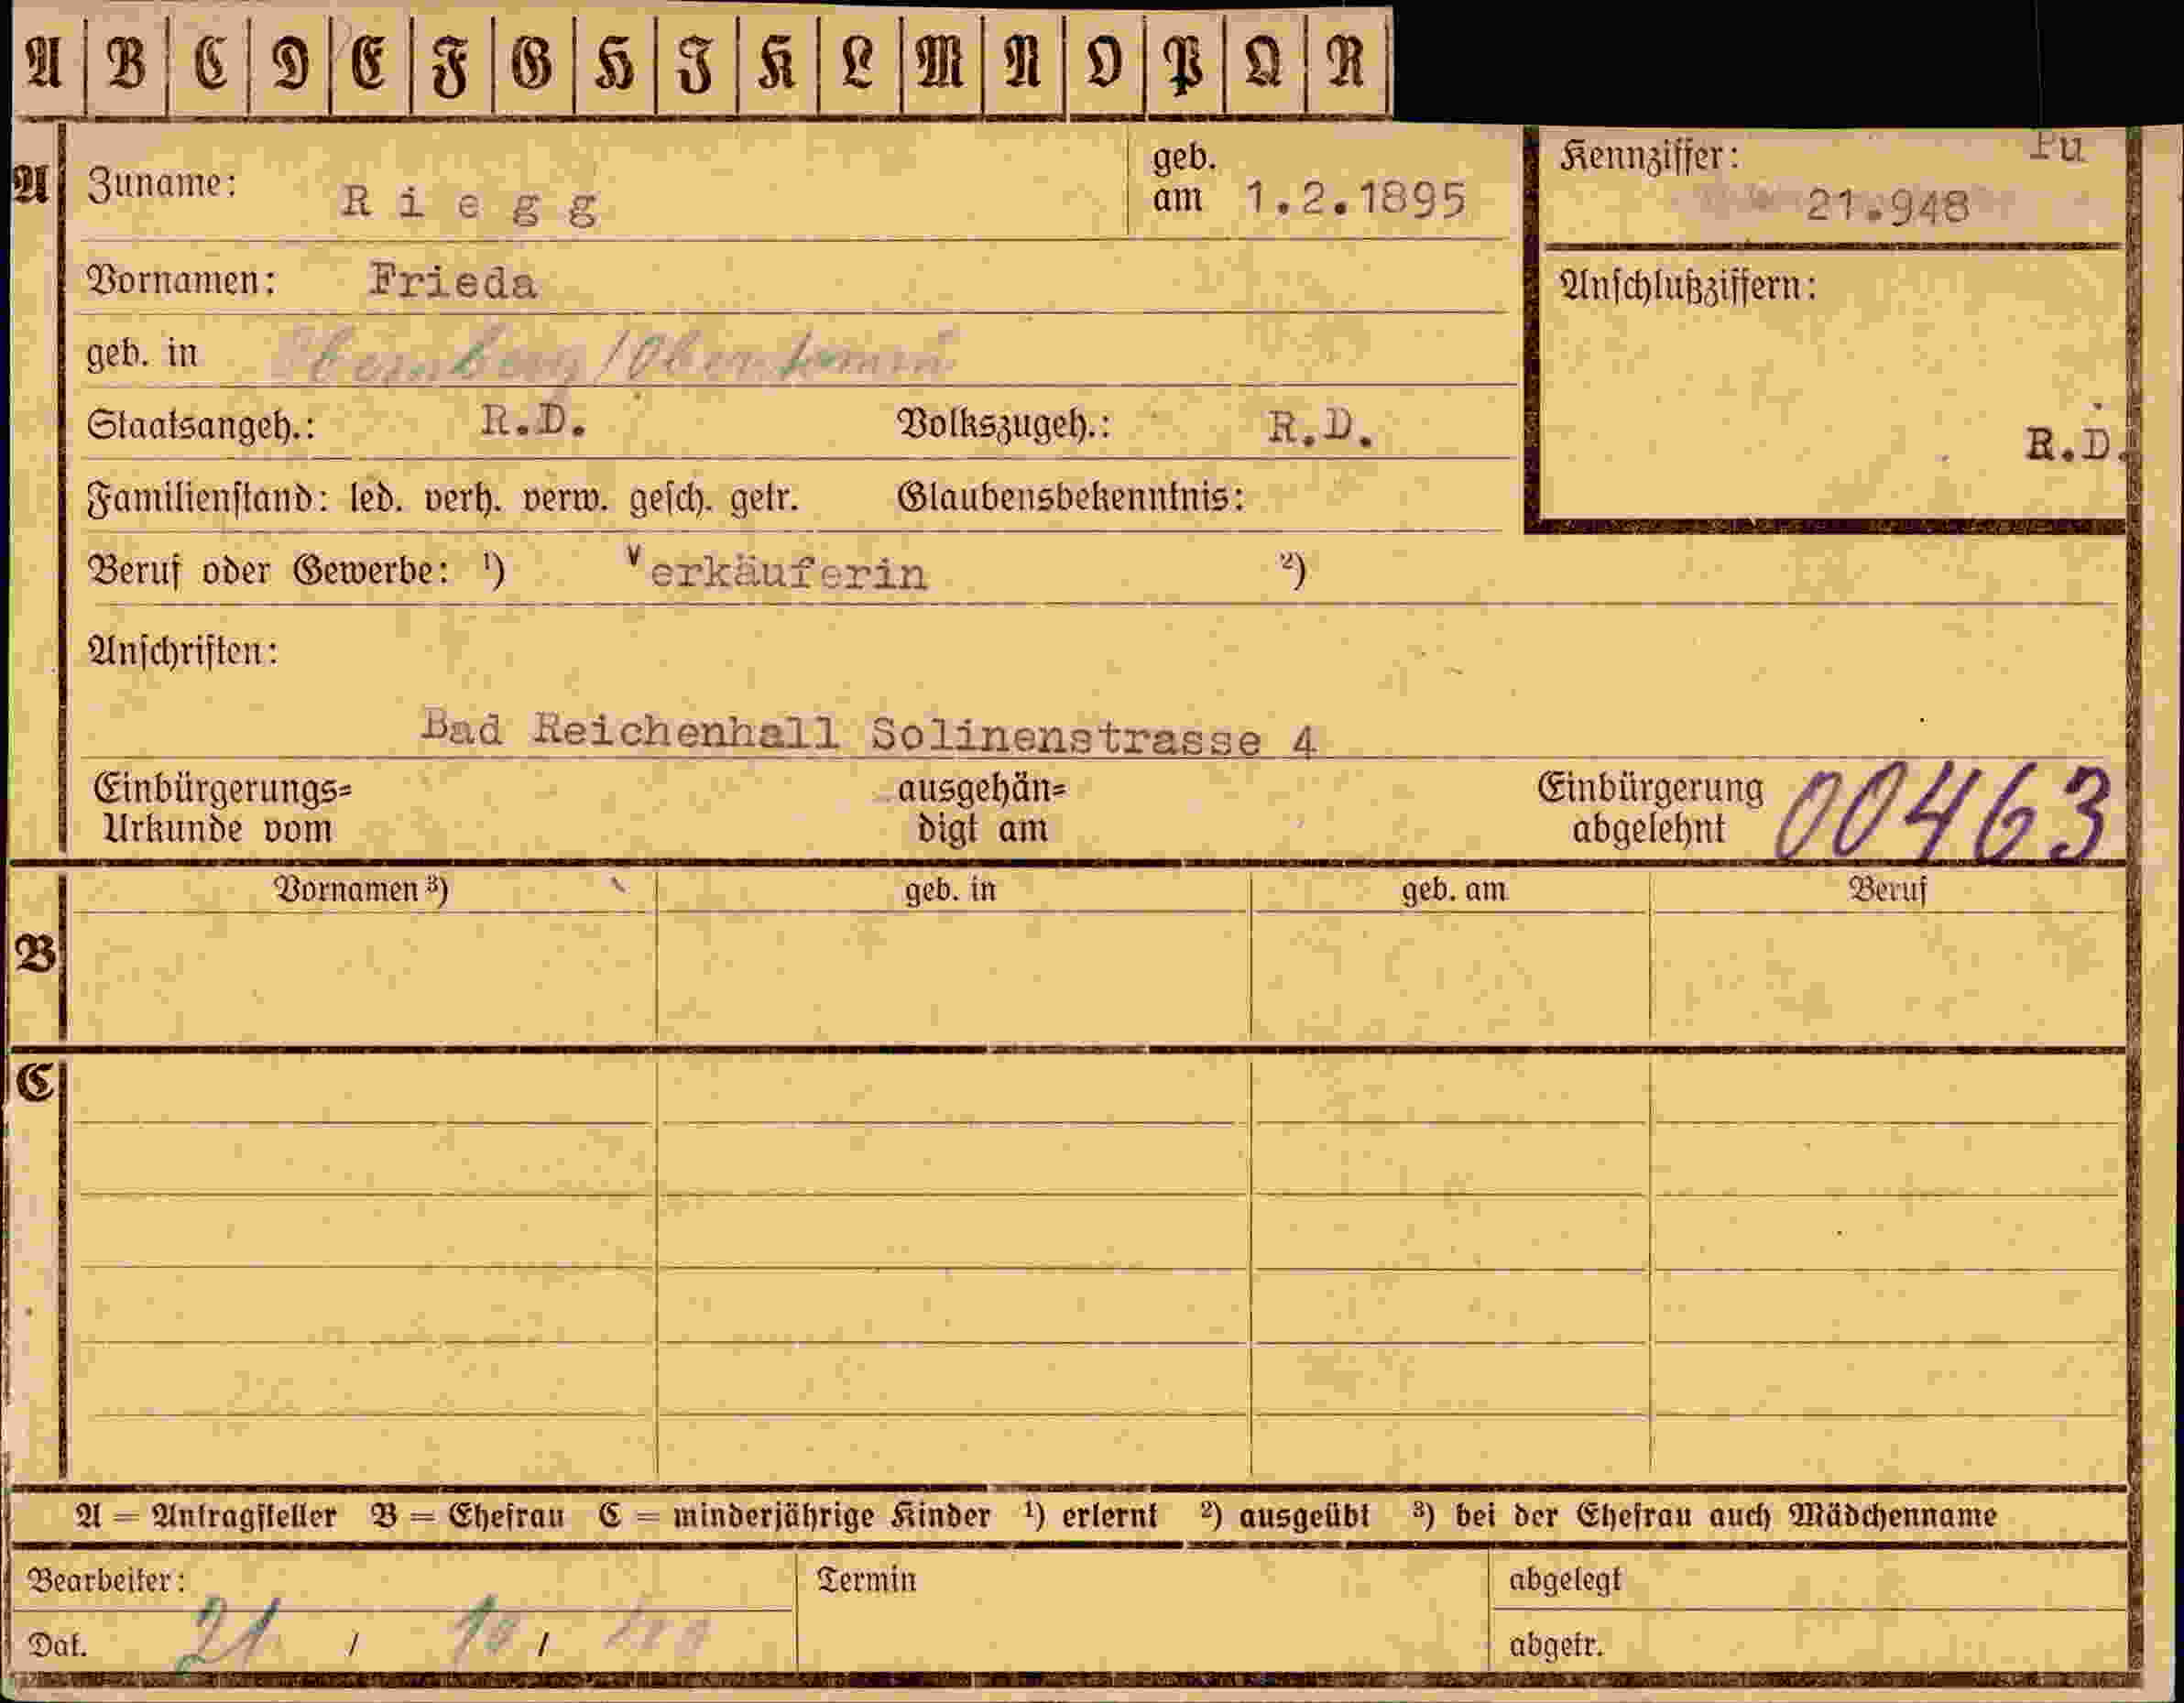 A B C D E F G H I K L M N O P Q R
A
Zuname: Riegg geb. am 1.2.1895
Kennziffer: Pu
21.948
Vornamen: Frieda
Anschlußziffern:
geb. in
Staatsangeh.: R.D. Volkszugeh.: R.D.
R.D.
Familienstand: led. verh. verw. gesch. getr. Glaubensbekenntnis:
Beruf oder Gewerbe: ¹) Verkäuferin ²)
Anschriften:
Bad Reichenhall Solinenstrasse 4
Einbürgerungs= ausgehän= Einbürgerung 00463
Urkunde vom digt am abgelehnt
Vornamen ³) geb. in geb. am Beruf
B
C
A = Antragsteller B = Ehefrau C = minderjährige Kinder ¹) erlernt ²) ausgeübt ³) bei der Ehefrau auch Mädchenname
Bearbeiter: Termin abgelegt
Dat. 21 / 10 / abgetr.